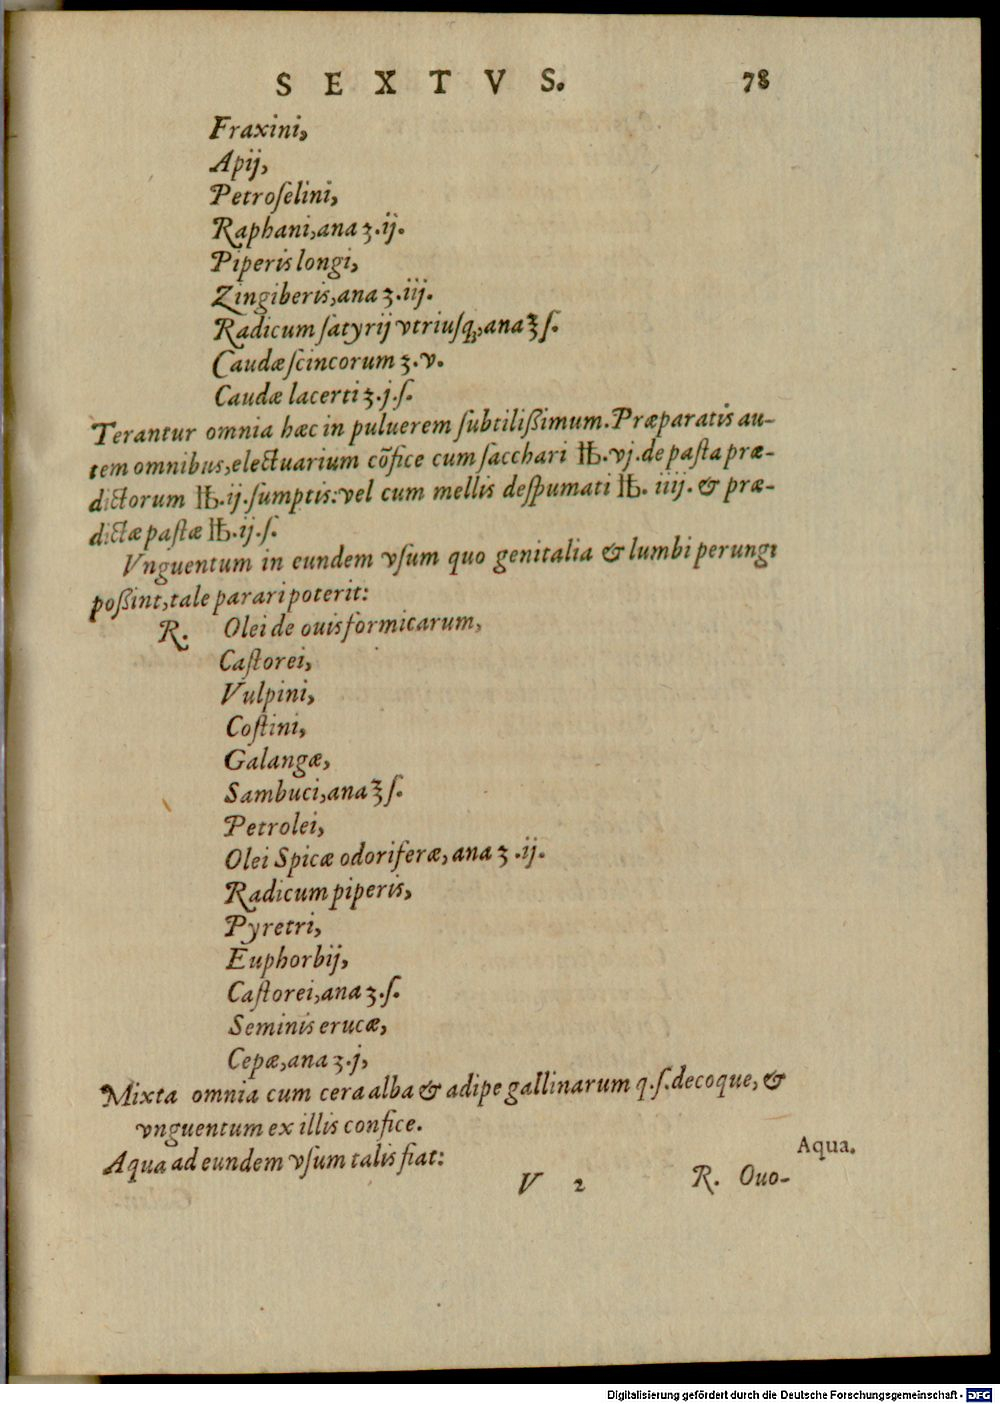 SEXTVS. 78
Fraxini,
Apij,
Petroſelini,
Raphani, ana ʒ.ij.
Piperis longi,
Zingiberis, ana ʒ.iij.
Radicum ſatyrij vtriuſq́;, ana ℥ ſ.
Caudæ ſcincorum ʒ.v.
Caudæ lacerti ʒ.j.ſ.
Terantur omnia hæc in puluerem ſubtilißimum. Præparatis au-
tem omnibus, electuarium cõfice cum ſacchari ℔.vj. de paſta præ-
dictorum ℔.ij. ſumptis: vel cum mellis deſpumati ℔. iiij. & præ-
dictæ paſtæ ℔.ij.ſ.
Vnguentum in eundem vſum quo genitalia & lumbi perungi
poßint, tale parari poterit:
R. Olei de ouis formicarum,
Caſtorei,
Vulpini,
Coſtini,
Galangæ,
Sambuci, ana ℥ ſ.
Petrolei,
Olei Spicæ odoriferæ, ana ʒ.ij.
Radicum piperis,
Pyretri,
Euphorbij,
Caſtorei, ana ʒ.ſ.
Seminis erucæ,
Cepæ, ana ʒ.j,
Mixta omnia cum cera alba & adipe gallinarum q.ſ. decoque, &
vnguentum ex illis confice.
Aqua.
Aqua ad eundem vſum talis fiat:
V 2 R. Ouo-
Digitalisierung gefördert durch die Deutsche Forschungsgemeinschaft - DFG